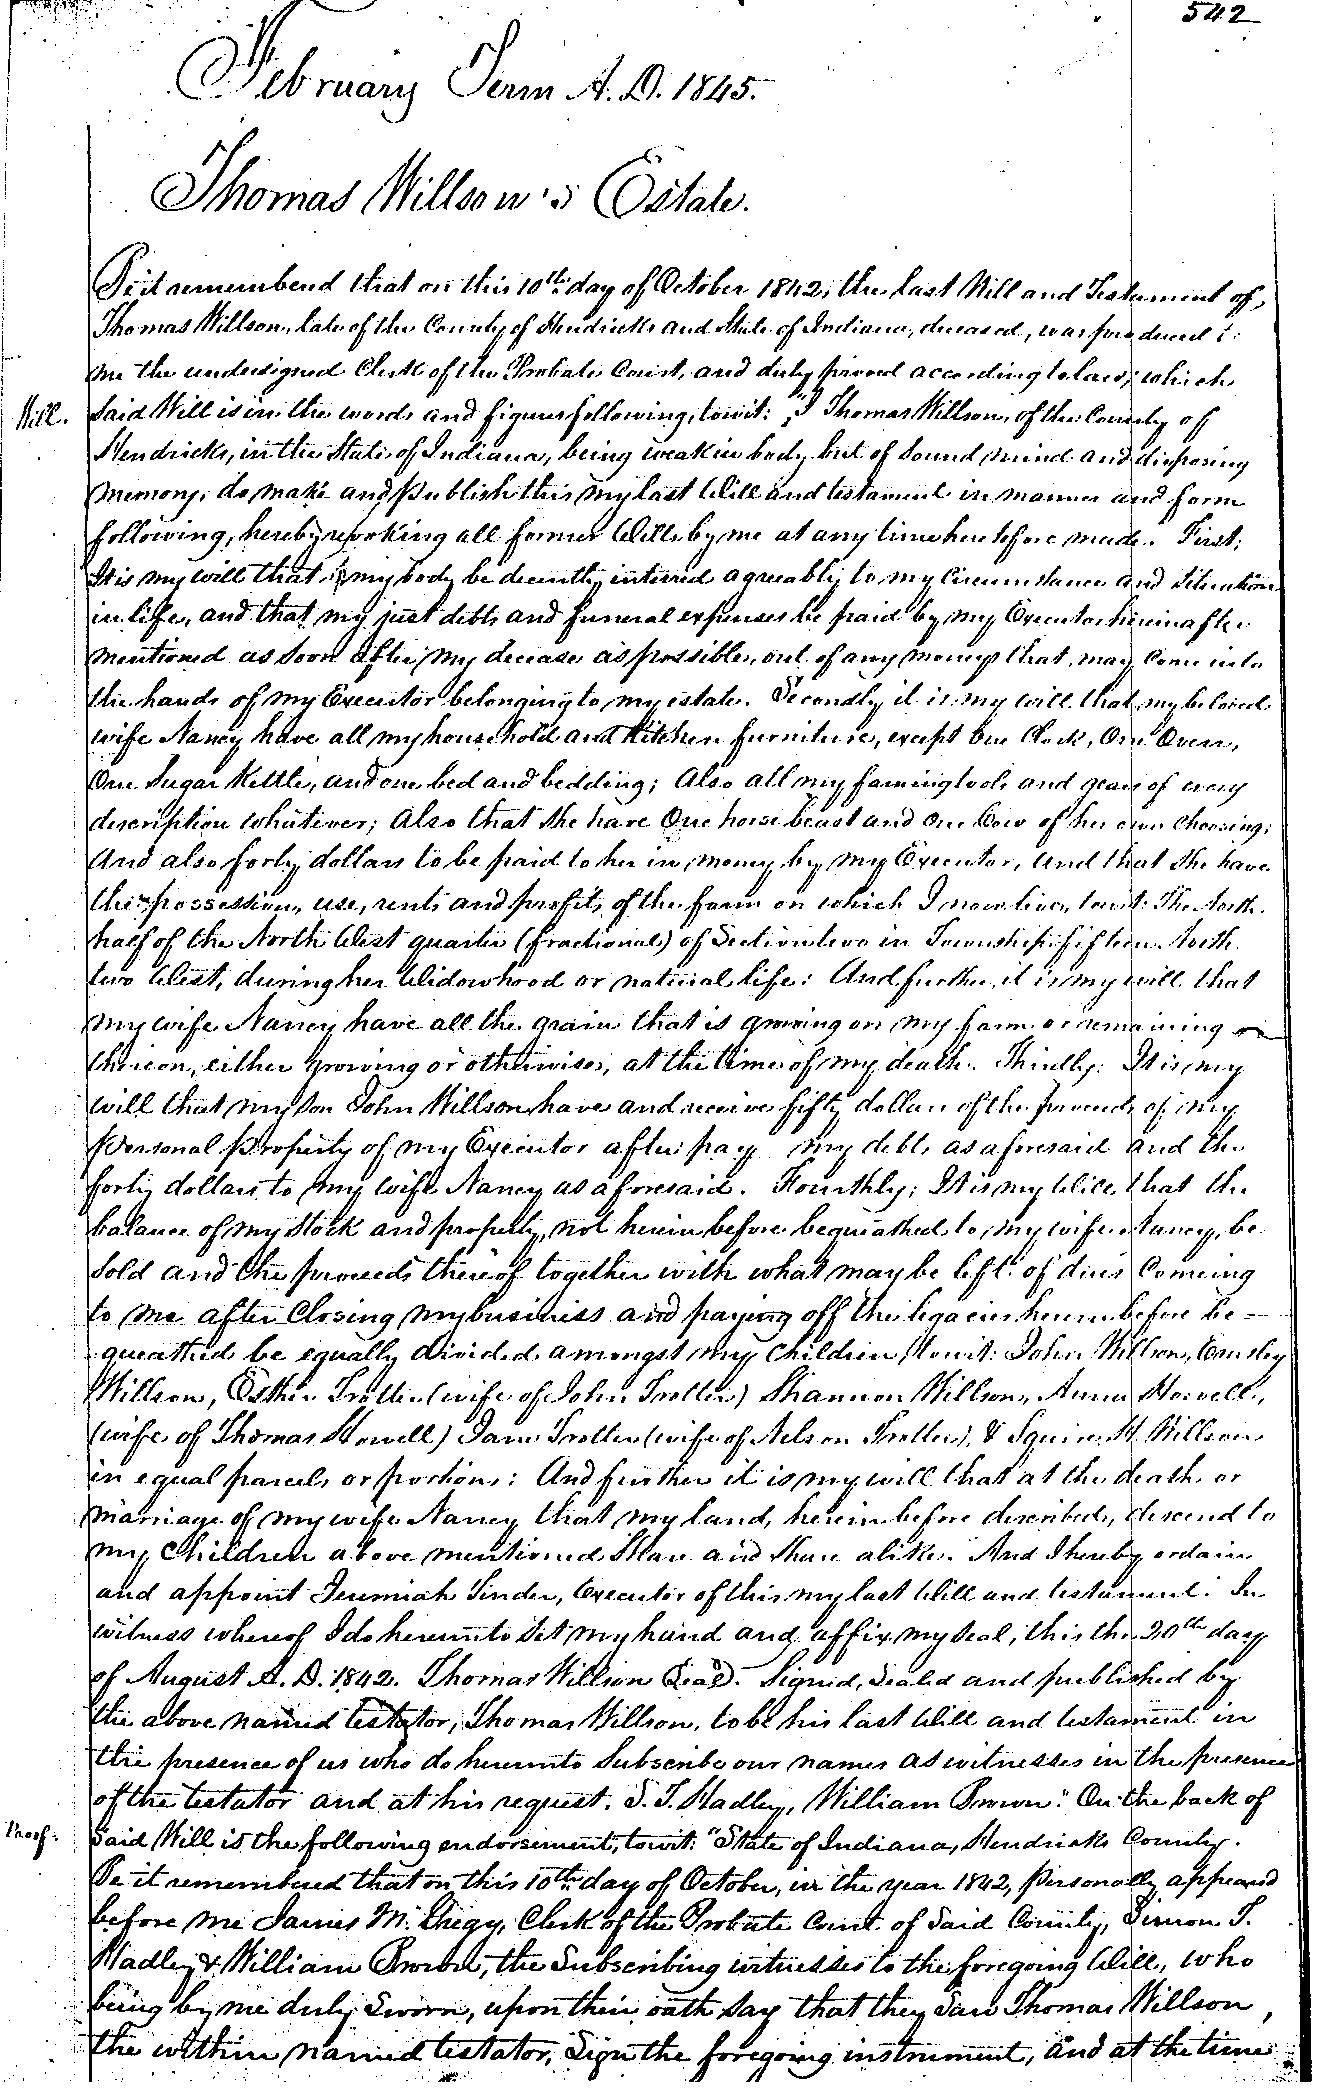 542
February Term A. D. 1845.
Thomas Willson's Estate.
Be it remembered that on this 10th day of October 1842, the last Will and Testament of
Thomas Willson, late of the County of Hendricks and State of Indiana, deceased, was produced t:
me the undersigned Clerk of the Probate Court, and duly proved according to law; which
Will. said Will is in the words and figures following, towit: "I Thomas Willson, of the County of
Hendricks, in the State of Indiana, being weak in body but of sound mind and disposing
memory; do make and publish this my last Will and testament in manner and form
following, hereby revoking all former Wills by me at any time heretofore made. First;
It is my will that my body be decently interred agreeably to my Circumstance and Situation
in life, and that my just debts and funeral expenses be paid by my Executor hereinafter
mentioned as soon after my decease as possible, out of any moneys that may come into
the hands of my Executor belonging to my estate. Secondly it is my will that my beloved
wife Nancy have all my household and Kitchen furniture, except One Clock, One Oven,
One Sugar Kettle, and one bed and bedding; Also all my farming tools and gears of every
description whatever; Also that she have One horse beast and One Cow of her own choosing;
And also forty dollars to be paid to her in money by my Executor, And that she have
the possession, use, rents and profits of the farm on which I now live, towit: The North
half of the North West quarter (fractional) of Section two in Township fifteen North
two West, during her Widowhood or natural life: And further, it is my will that
my wife Nancy have all the grain that is growing on my farm or remaining
thereon, either growing or otherwise, at the time of my death. Thirdly: It is my
will that my son John Willson have and receive fifty dollars of the proceeds of my
personal property of my Executor after pay my debts as aforesaid and the
forty dollars to my wife Nancy as aforesaid. Fourthly; It is my Will that the
balance of my Stock and property, not herein before bequeathed to my wife Nancy, be
sold and the proceeds thereof together with what may be left of dues Comeing
to me after Closing my business and paying off the legacies herein before be-
queathed be equally divided amongst my children, towit: John Willson,
Willson, Esther Trotter (wife of John Trotter) Shannon Willson, Anna Howell,
(wife of Thomas Howell) Jane Trotter (wife of Nelson Trotter), & Squire H. Willson
in equal parcels or portions: And further it is my will that at the death or
marriage of my wife Nancy that my land, herein before described, descend to
my Children above mentioned Share and Share alike. And I hereby ordain
and appoint Jeremiah Tinder, Executor of this my last Will and testament. In
witness whereof I do hereunto Set my hand and affix my seal, this the 20th day
of August A. D. 1842. Thomas Willson Seal. Signed, Sealed and published by
the above named testator, Thomas Willson, to be his last Will and testament in
the presence of us who do hereunto Subscribe our names as witnesses in the presence
of the testator and at his request. S. T. Hadley, William Brown." On the back of
Proof: said Will is the following endorsement, towit: "State of Indiana, Hendricks County.
Be it remembered that on this 10th day of October, in the year 1842, personally appeared
before me James M. Gregg, Clerk of the Probate Court of Said County, Simon T.
Hadley & William Brown, the Subscribing witnesses to the foregoing Will, who
being by me duly Sworn, upon their oath say that they Saw Thomas Willson,
the within named testator, Sign the foregoing instrument, and at the time